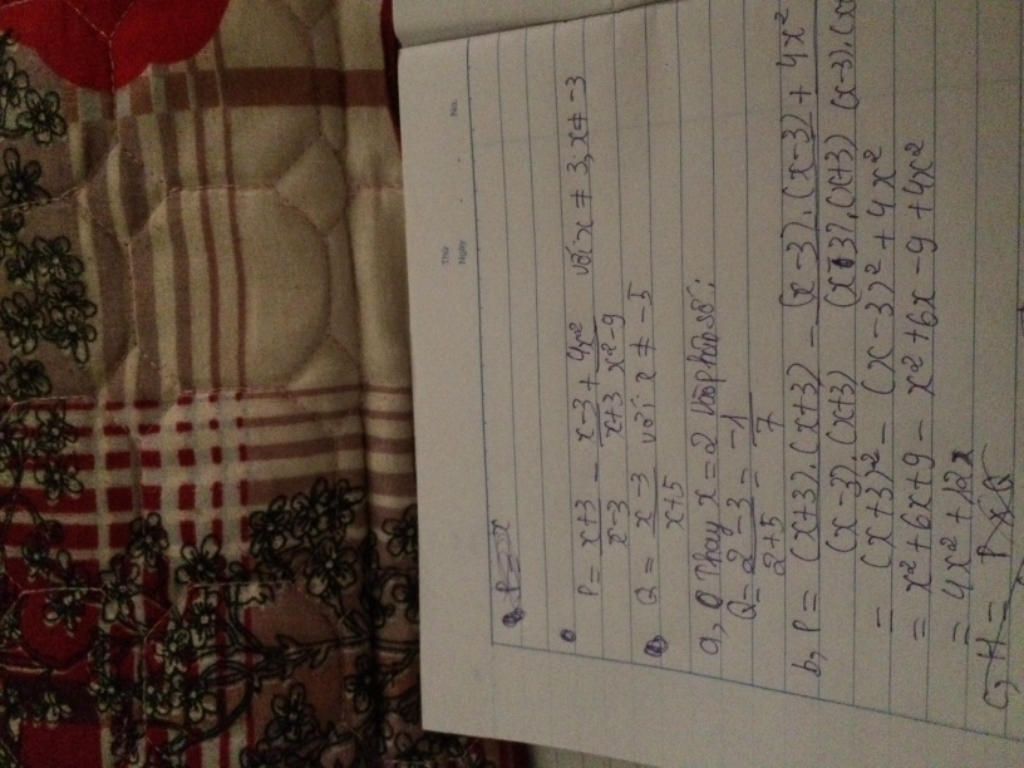 Thứ
Ngày
No.
P = x
P = x+3/x-3 - x-3/x+3 + 4x²/x²-9 với x ≠ 3, x ≠ -3
Q = x-3/x+5 với x ≠ -5
a, Thay x = 2 vào phân số:
Q = 2-3/2+5 = -1/7
b, P = (x+3).(x+3)/(x-3).(x+3) - (x-3).(x-3)/(x+3).(x+3) + 4x²/(x-3).(x
= (x+3)² - (x-3)² + 4x²
= x² + 6x + 9 - x² + 6x - 9 + 4x²
= 4x² + 12x
c, H = P x Q